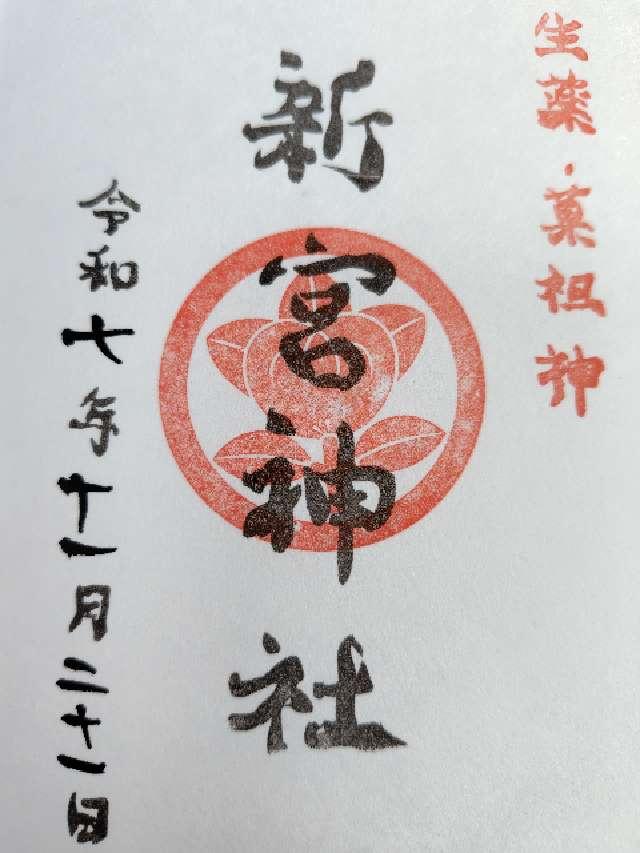 生薬・菓祖神
新宮神社
令和七年十一月二十一日